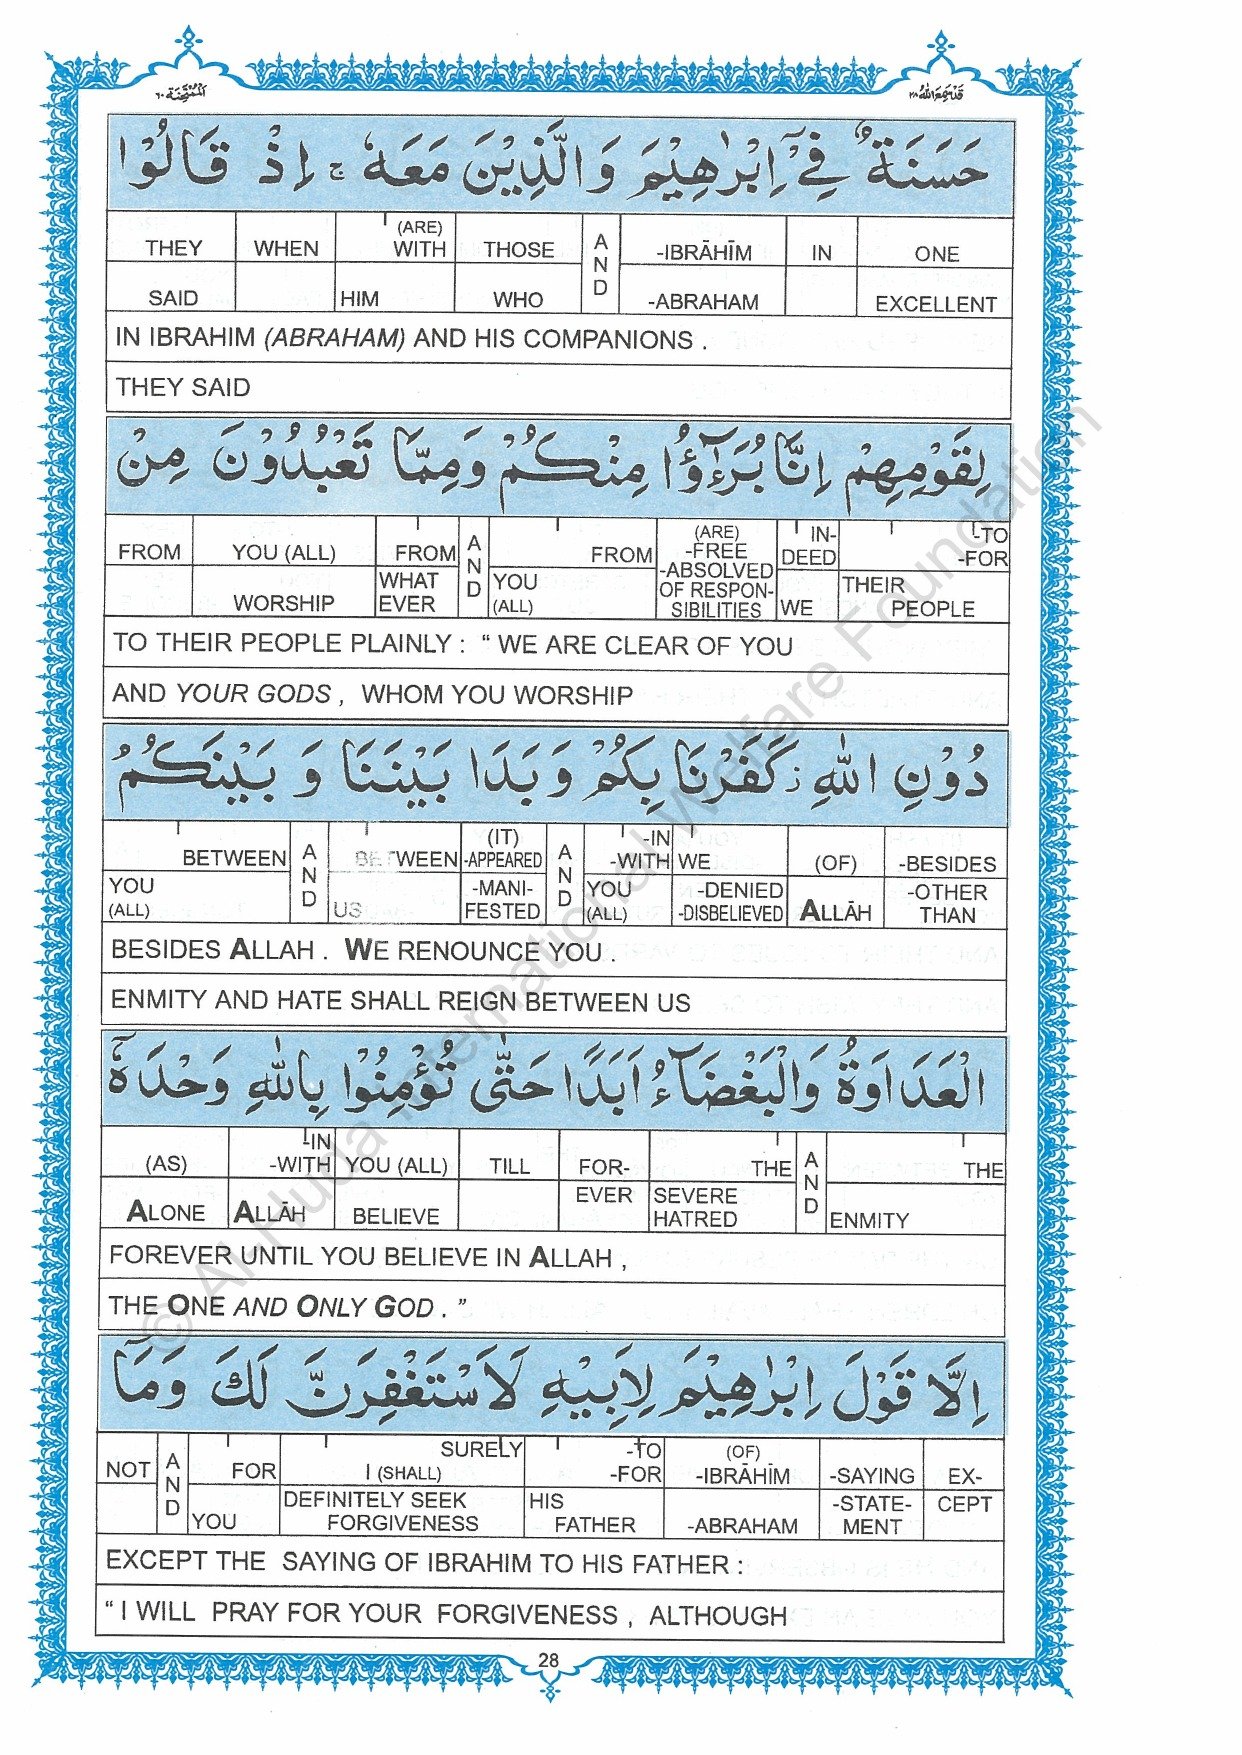 الممتحنة ٦٠
قد سمع الله ٢٨
حَسَنَةٌ فِيْٓ اِبْرٰهِيْمَ وَالَّذِيْنَ مَعَهٗ ۚ اِذْ قَالُوْا
THEY WHEN (ARE) WITH THOSE AND -IBRĀHĪM IN ONE
SAID HIM WHO -ABRAHAM EXCELLENT
IN IBRAHIM (ABRAHAM) AND HIS COMPANIONS .
THEY SAID
لِقَوْمِهِمْ اِنَّا بُرَءٰٓؤُا مِنْكُمْ وَمِمَّا تَعْبُدُوْنَ مِنْ
FROM YOU (ALL) FROM AND FROM (ARE) -FREE -ABSOLVED IN- DEED -TO -FOR
WORSHIP WHAT EVER YOU (ALL) OF RESPON- SIBILITIES WE THEIR PEOPLE
TO THEIR PEOPLE PLAINLY : “ WE ARE CLEAR OF YOU
AND YOUR GODS , WHOM YOU WORSHIP
دُوْنِ اللّٰهِ ز كَفَرْنَا بِكُمْ وَبَدَا بَيْنَنَا وَ بَيْنَكُمُ
BETWEEN AND BETWEEN (IT) -APPEARED AND -IN -WITH WE (OF) -BESIDES
YOU (ALL) US -MANI- FESTED YOU (ALL) -DENIED -DISBELIEVED ALLĀH -OTHER THAN
BESIDES ALLAH . WE RENOUNCE YOU .
ENMITY AND HATE SHALL REIGN BETWEEN US
الْعَدَاوَةُ وَالْبَغْضَآءُ اَبَدًا حَتّٰى تُؤْمِنُوْا بِاللّٰهِ وَحْدَهٗٓ
(AS) -IN -WITH YOU (ALL) TILL FOR- THE AND THE
ALONE ALLĀH BELIEVE EVER SEVERE HATRED ENMITY
FOREVER UNTIL YOU BELIEVE IN ALLAH ,
THE ONE AND ONLY GOD . ”
اِلَّا قَوْلَ اِبْرٰهِيْمَ لِاَبِيْهِ لَاَسْتَغْفِرَنَّ لَكَ وَمَآ
NOT AND FOR SURELY I (SHALL) -TO -FOR (OF) -IBRĀHĪM -SAYING EX-
YOU DEFINITELY SEEK FORGIVENESS HIS FATHER -ABRAHAM -STATE- MENT CEPT
EXCEPT THE SAYING OF IBRAHIM TO HIS FATHER :
“ I WILL PRAY FOR YOUR FORGIVENESS , ALTHOUGH
28
© Al-Huda International Welfare Foundation